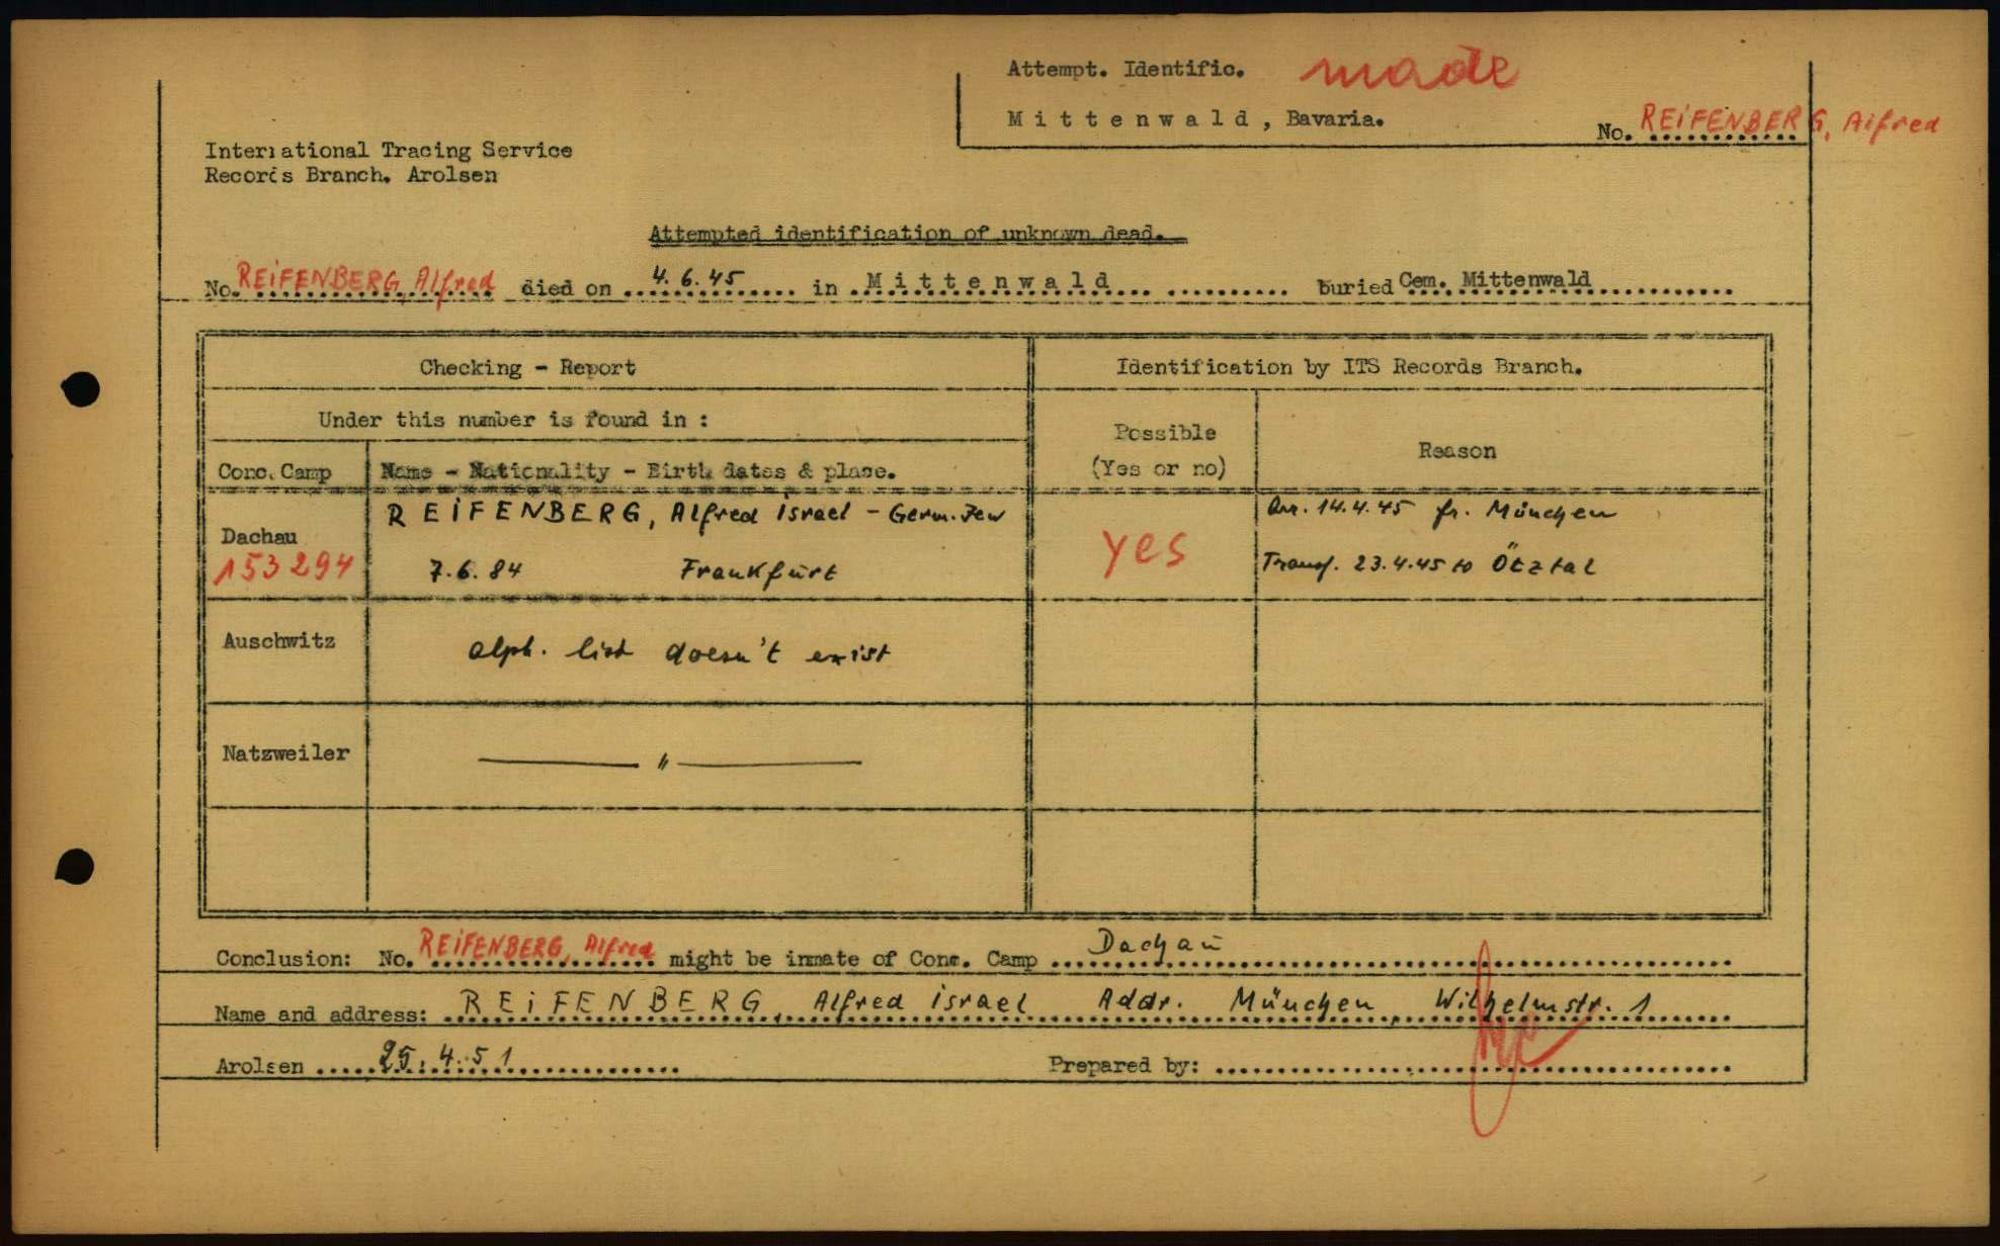 Attempt. Identific. made
Mittenwald, Bavaria.
No. REIFENBERG, Alfred
International Tracing Service
Records Branch. Arolsen
Attempted identification of unknown dead.
No. REIFENBERG, Alfred died on 4.6.45 in Mittenwald buried Cem. Mittenwald
Checking - Report Identification by ITS Records Branch.
Under this number is found in :
Possible
(Yes or no)
Reason
Conc. Camp Name - Nationality - Birth dates & place.
Dachau
153294
REIFENBERG, Alfred Israel - Germ. Jew
7.6.84 Frankfurt
yes
Arr. 14.4.45 fr. München
Transf. 23.4.45 to Ötztal
Auschwitz alph. list doesn't exist
Natzweiler — " —
Conclusion: No. REIFENBERG, Alfred might be inmate of Conc. Camp Dachau
Name and address: REIFENBERG, Alfred Israel Addr. München, Wilhelmstr. 1
Arolsen 25.4.51 Prepared by: